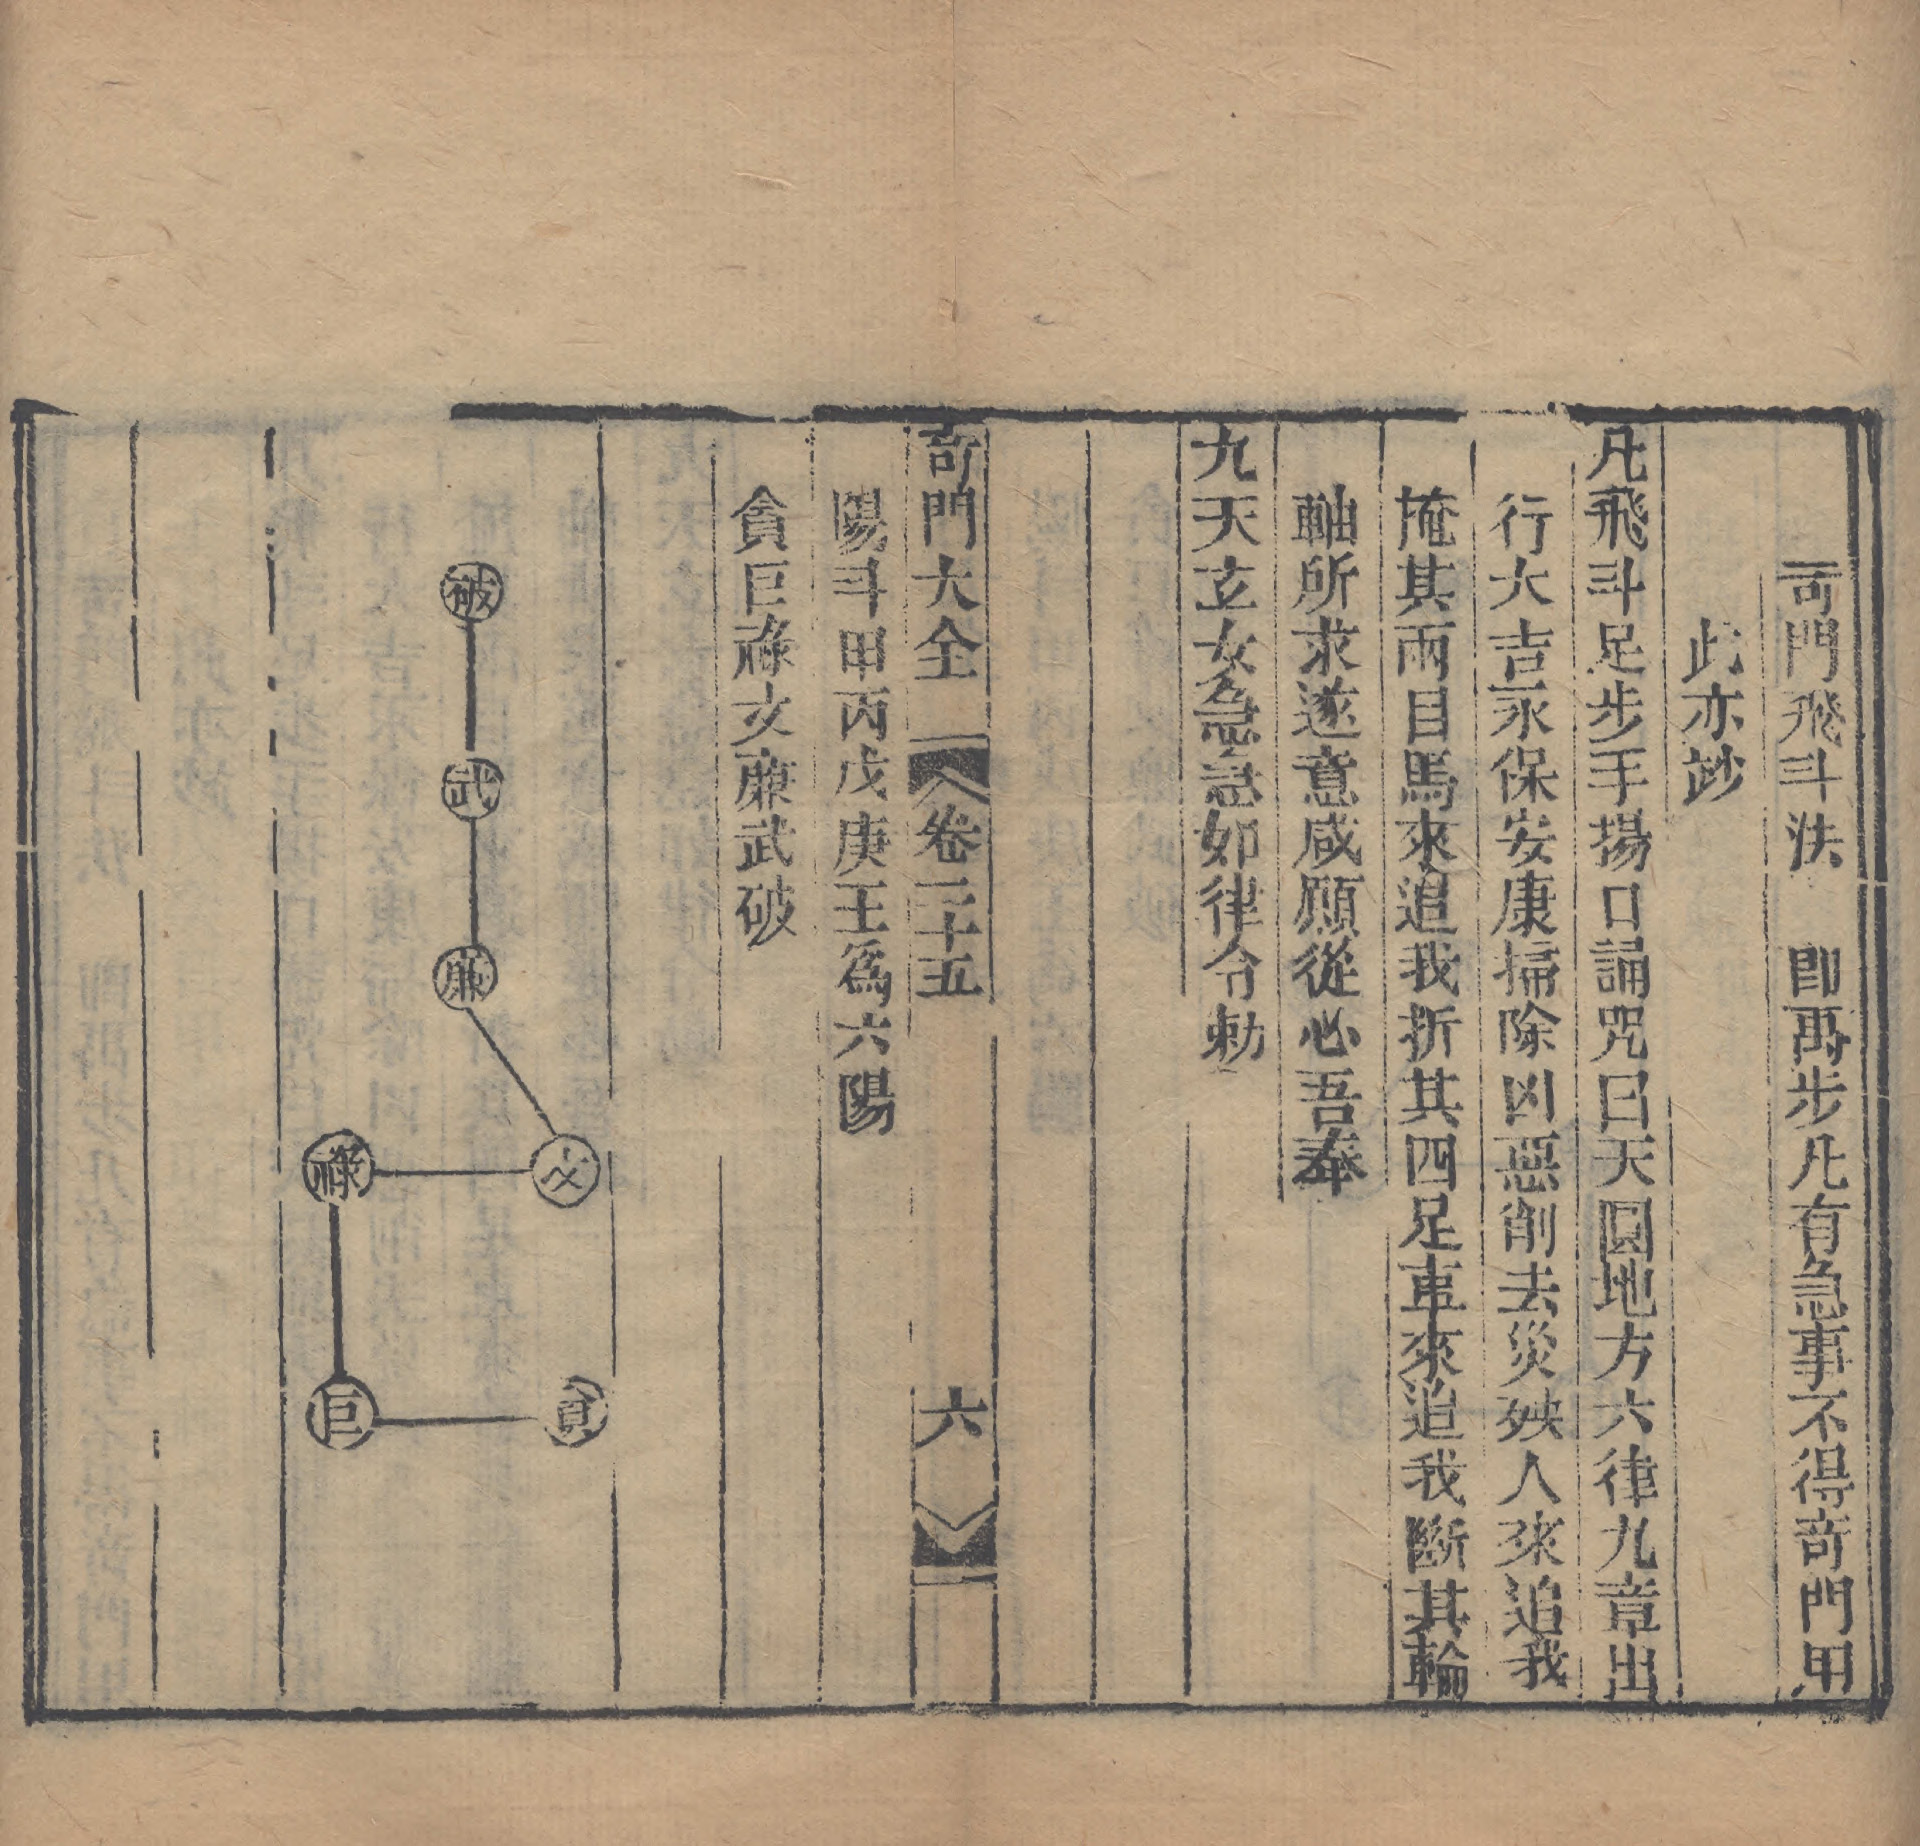 奇門飛斗法　即禹步凡有急事不得奇門用
此亦妙
凡飛斗足步手揚口誦咒曰天圓地方六律九章出
行大吉永保安康掃除凶惡削去災殃人來追我
掩其兩目馬來追我折其四足車來追我斷其輪
軸所求遂意咸願從心吾奉
九天玄女急急如律令勅
奇門大全　卷二十五　六
陽斗甲丙戊庚壬爲六陽
貪巨祿文廉武破
破
武
廉
祿　文
巨　貪